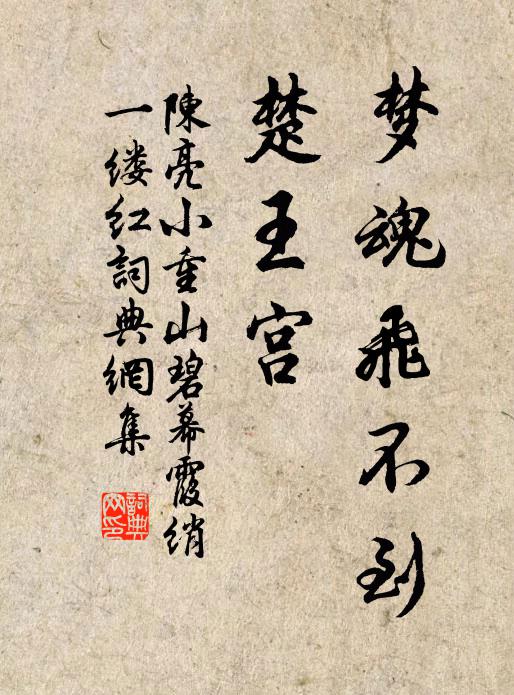 梦魂飛不到
楚王宫
陳亮小重山碧幕霞绡
一缕红詞典網集
詞典
网印